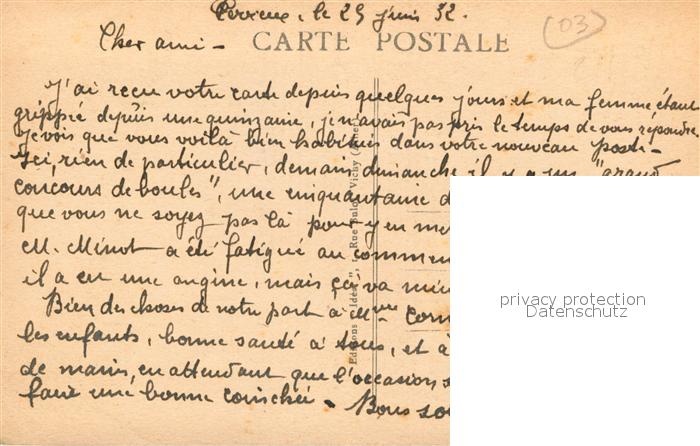 le 25 juin 32.
(03)
Cher ami -
CARTE POSTALE
J'ai reçu votre carte depuis quelques jours et ma femme étant
grippié depuis une quinzaine, je n'avais pas pris le temps de vous répondre.
Je vois que vous voilà bien habitués dans votre nouveau poste -
Ici, rien de particulier, demain dimanche il y a un "grand
concours de boules", une cinquantaine
que vous ne soyez pas là pour y en
M. Minot a été fatigué au commen
il a eu une angine, mais ça va
Bien des choses de notre part à Mme
les enfants, bonne santé à tous, et à
de mains, en attendant que l'occasion
faire une bonne coinchée - Bons
Editions "Idéa", 1, Rue Bulot, Vichy
privacy protection
Datenschutz